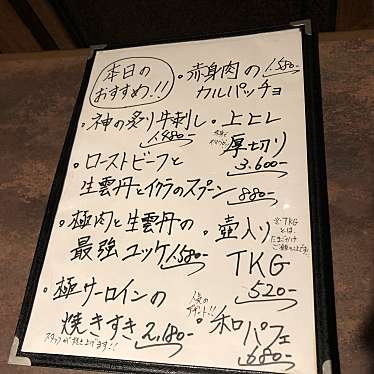 本日の
おすすめ!!
・赤身肉の
カルパッチョ
1,580-
・神の炙り牛刺し
1,480-
・上ヒレ
厚切り
3,600-
・ローストビーフと
生雲丹とイクラのスプーン
880-
・極肉と生雲丹の
最強ユッケ
1,580-
・壺入り
TKG
※TKG
とは、
たまごかけ
ご飯のことです
520-
・極サーロインの
焼きすき
2,180-
スタッフが焼き上げます!!
人気の
・和
パフェ
680-